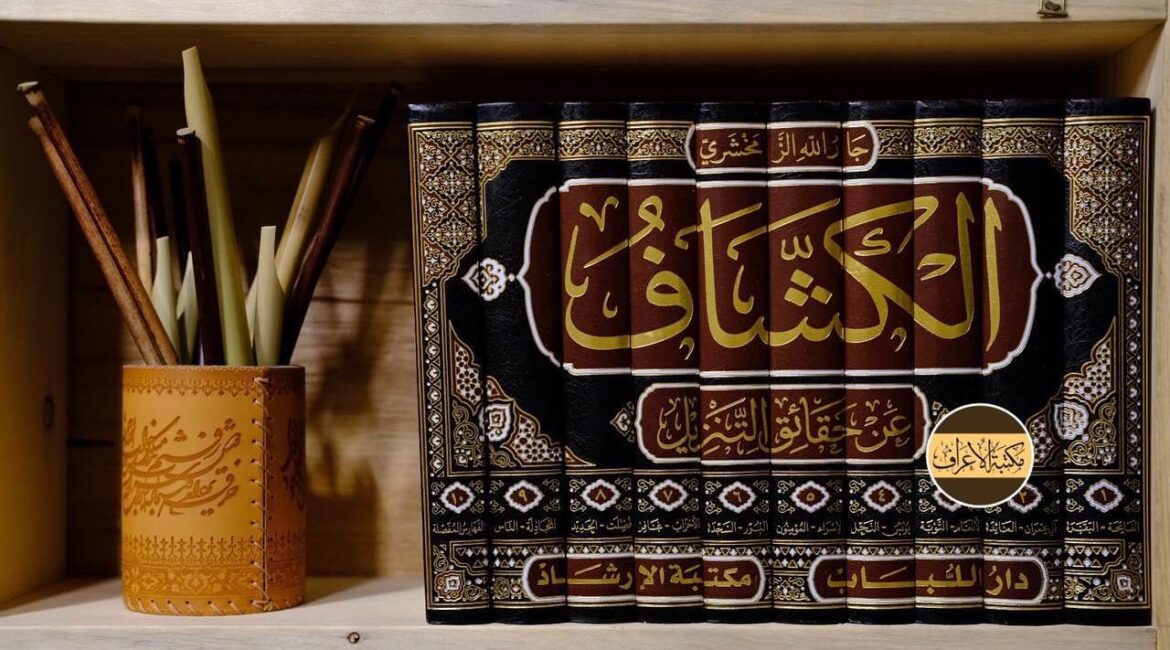 جَارُ اللهِ الزَّمَخْشَرِيّ
الكَشَّافُ
عَنْ حَقَائِقِ التَّنْزِيلِ
مكتبة الأعراف
١ ٢ ٤ ٥ ٦ ٧ ٨ ٩ ١٠
الفاتحة - البقرة آل عمران - المائدة الأنعام - التوبة يونس - النحل الإسراء - المؤمنون النور - السجدة الأحزاب - غافر فصلت - الحديد المجادلة - الناس الفهارس المفصلة
دَارُ اللُّبَابِ مكتبة الإرشاد